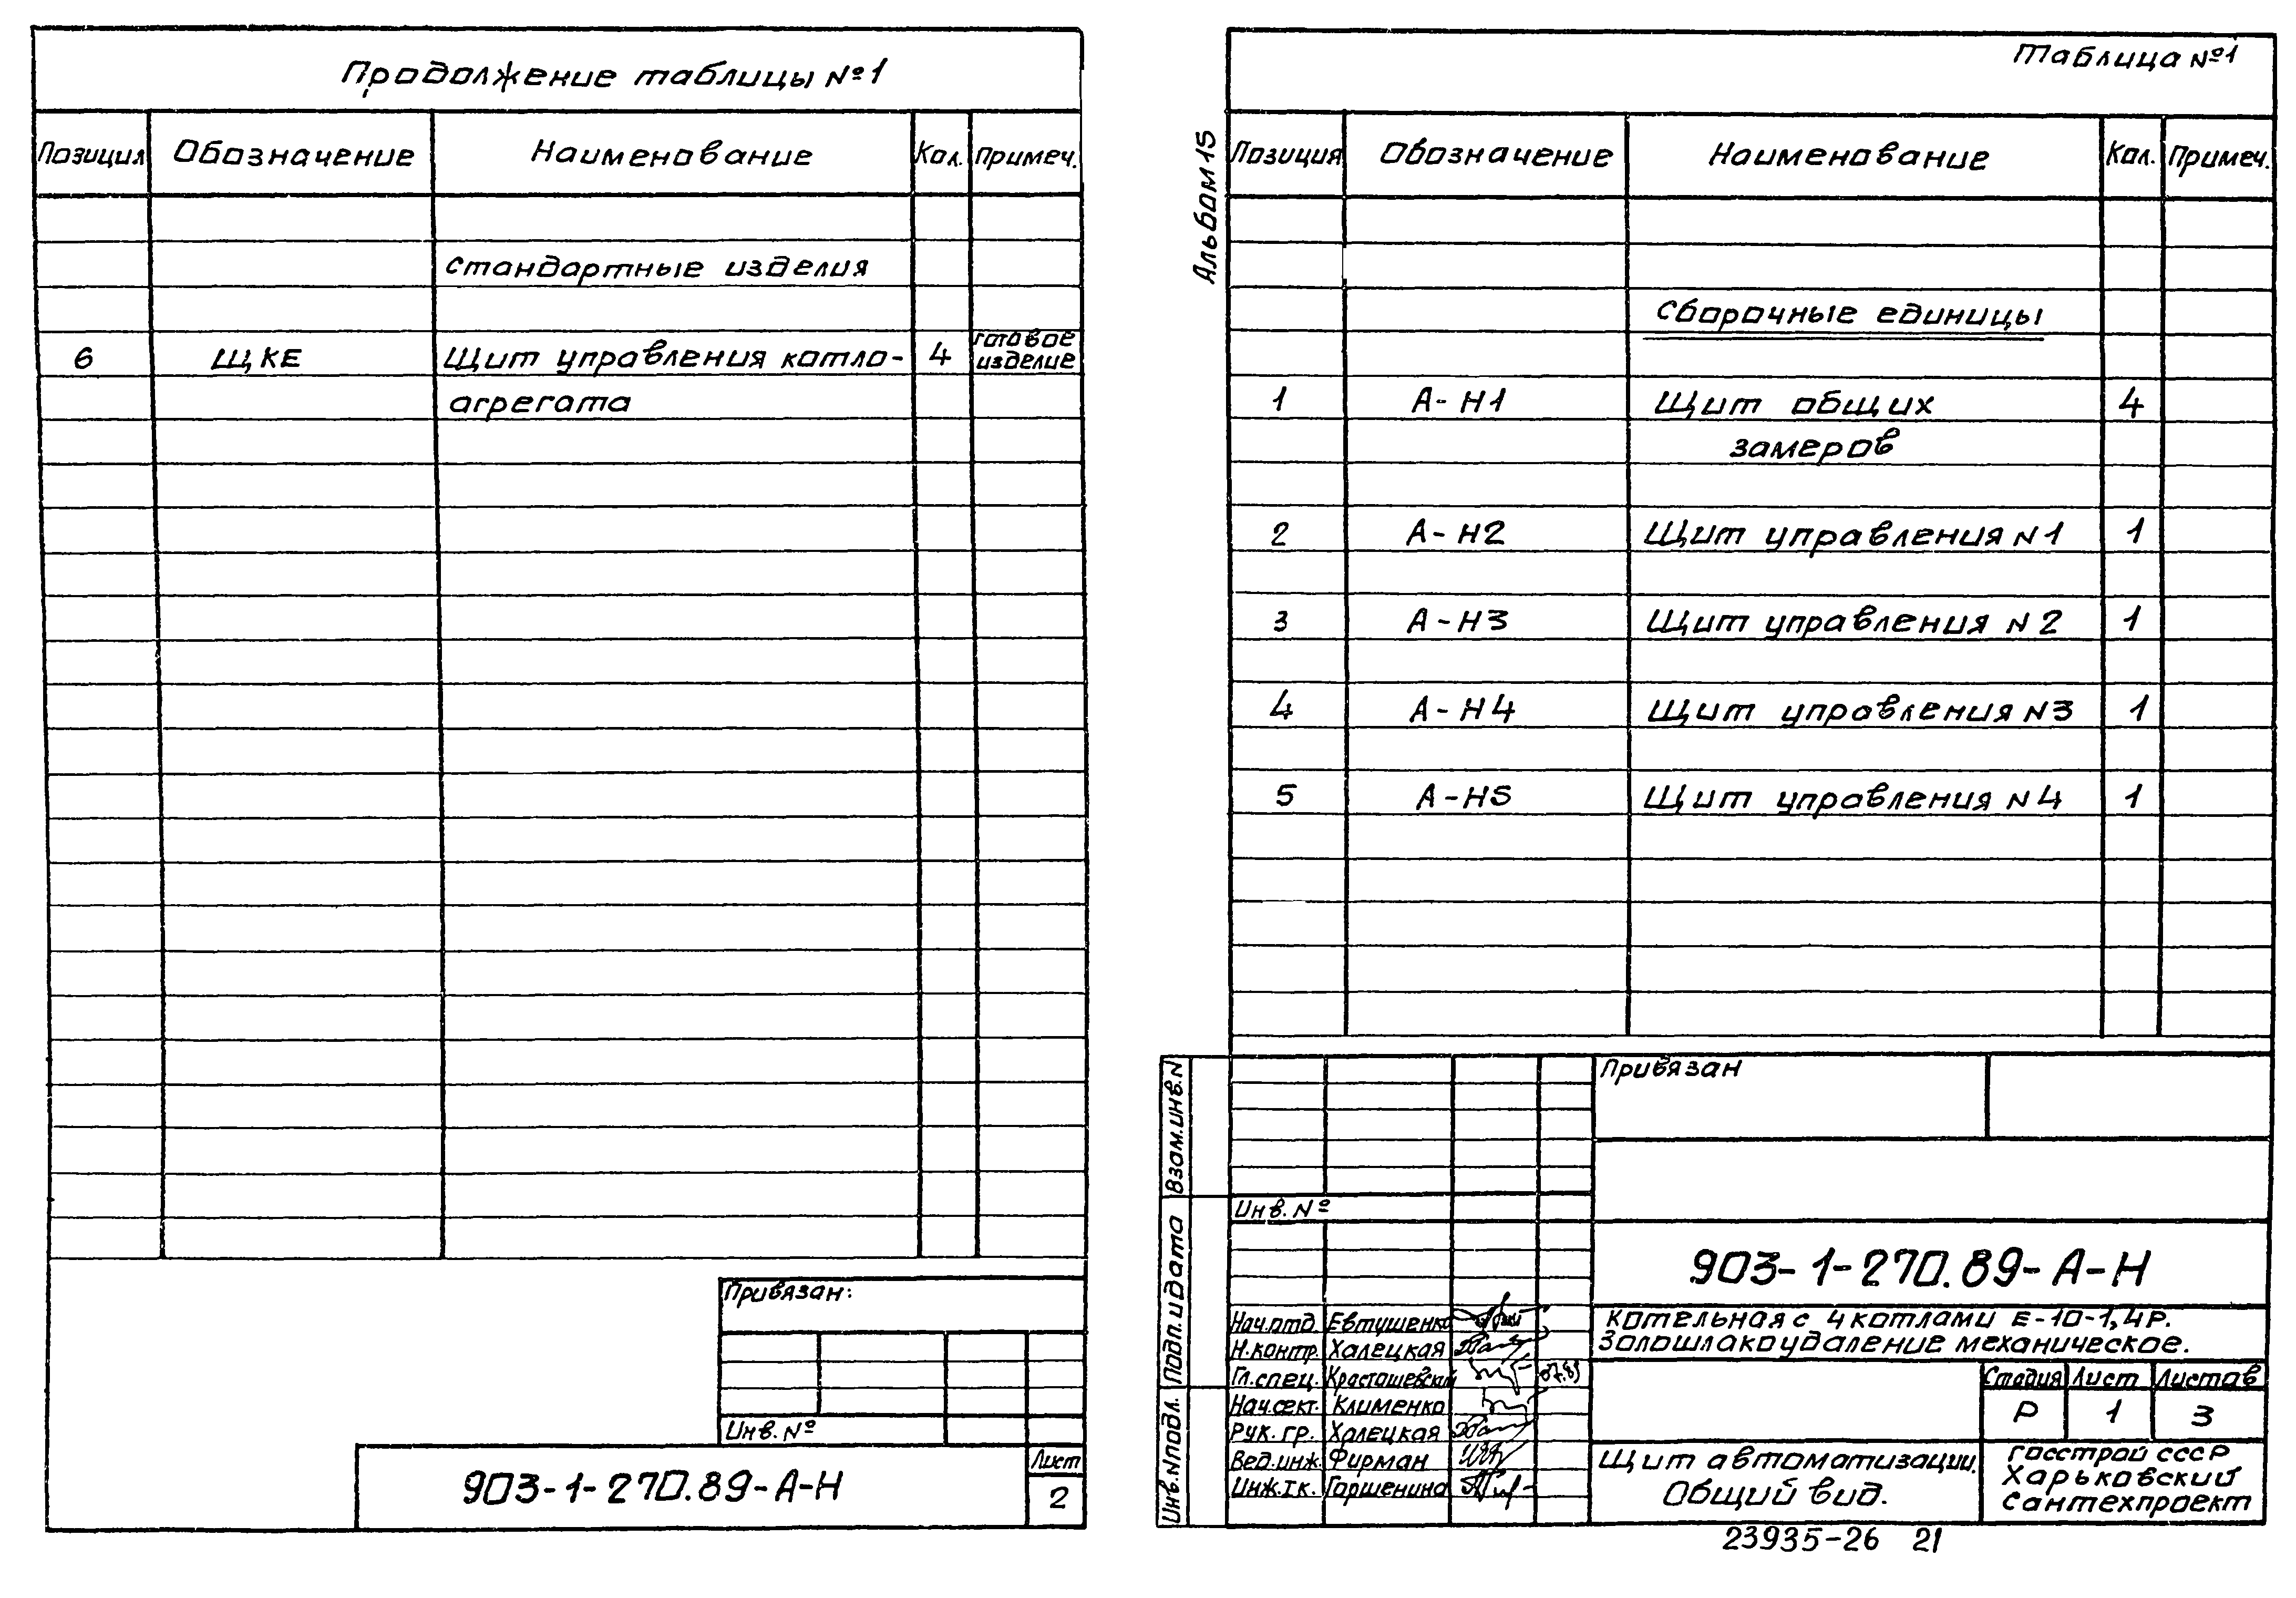 Продолжение таблицы №1
Позиция Обозначение Наименование Кол. Примеч.
Стандартные изделия
6 ЩКЕ Щит управления котло- 4 готовое изделие
агрегата
Привязан:
Инв. №
903-1-270.89-А-Н
Лист
2
Таблица №1
Альбом 15
Позиция Обозначение Наименование Кол. Примеч.
Сборочные единицы
1 А-Н1 Щит общих 4
замеров
2 А-Н2 Щит управления N1 1
3 А-Н3 Щит управления N2 1
4 А-Н4 Щит управления N3 1
5 А-Н5 Щит управления N4 1
Взам.инв.N
Подп. и дата
Инв.Nподл.
Привязан
Инв. №
903-1-270.89-А-Н
Нач.отд. Евтушенко
Н.контр. Халецкая
Гл.спец. 07.89
Нач.сект. Клименко
Рук. гр. Халецкая
Вед.инж. Фирман
Инж.Iк. Горшенина
Котельная с 4 котлами Е-10-1,4Р.
Золошлакоудаление механическое.
Стадия Лист Листов
Р 1 3
Щит автоматизации.
Общий вид.
Госстрой СССР
Харьковский
Сантехпроект
23935-26 21